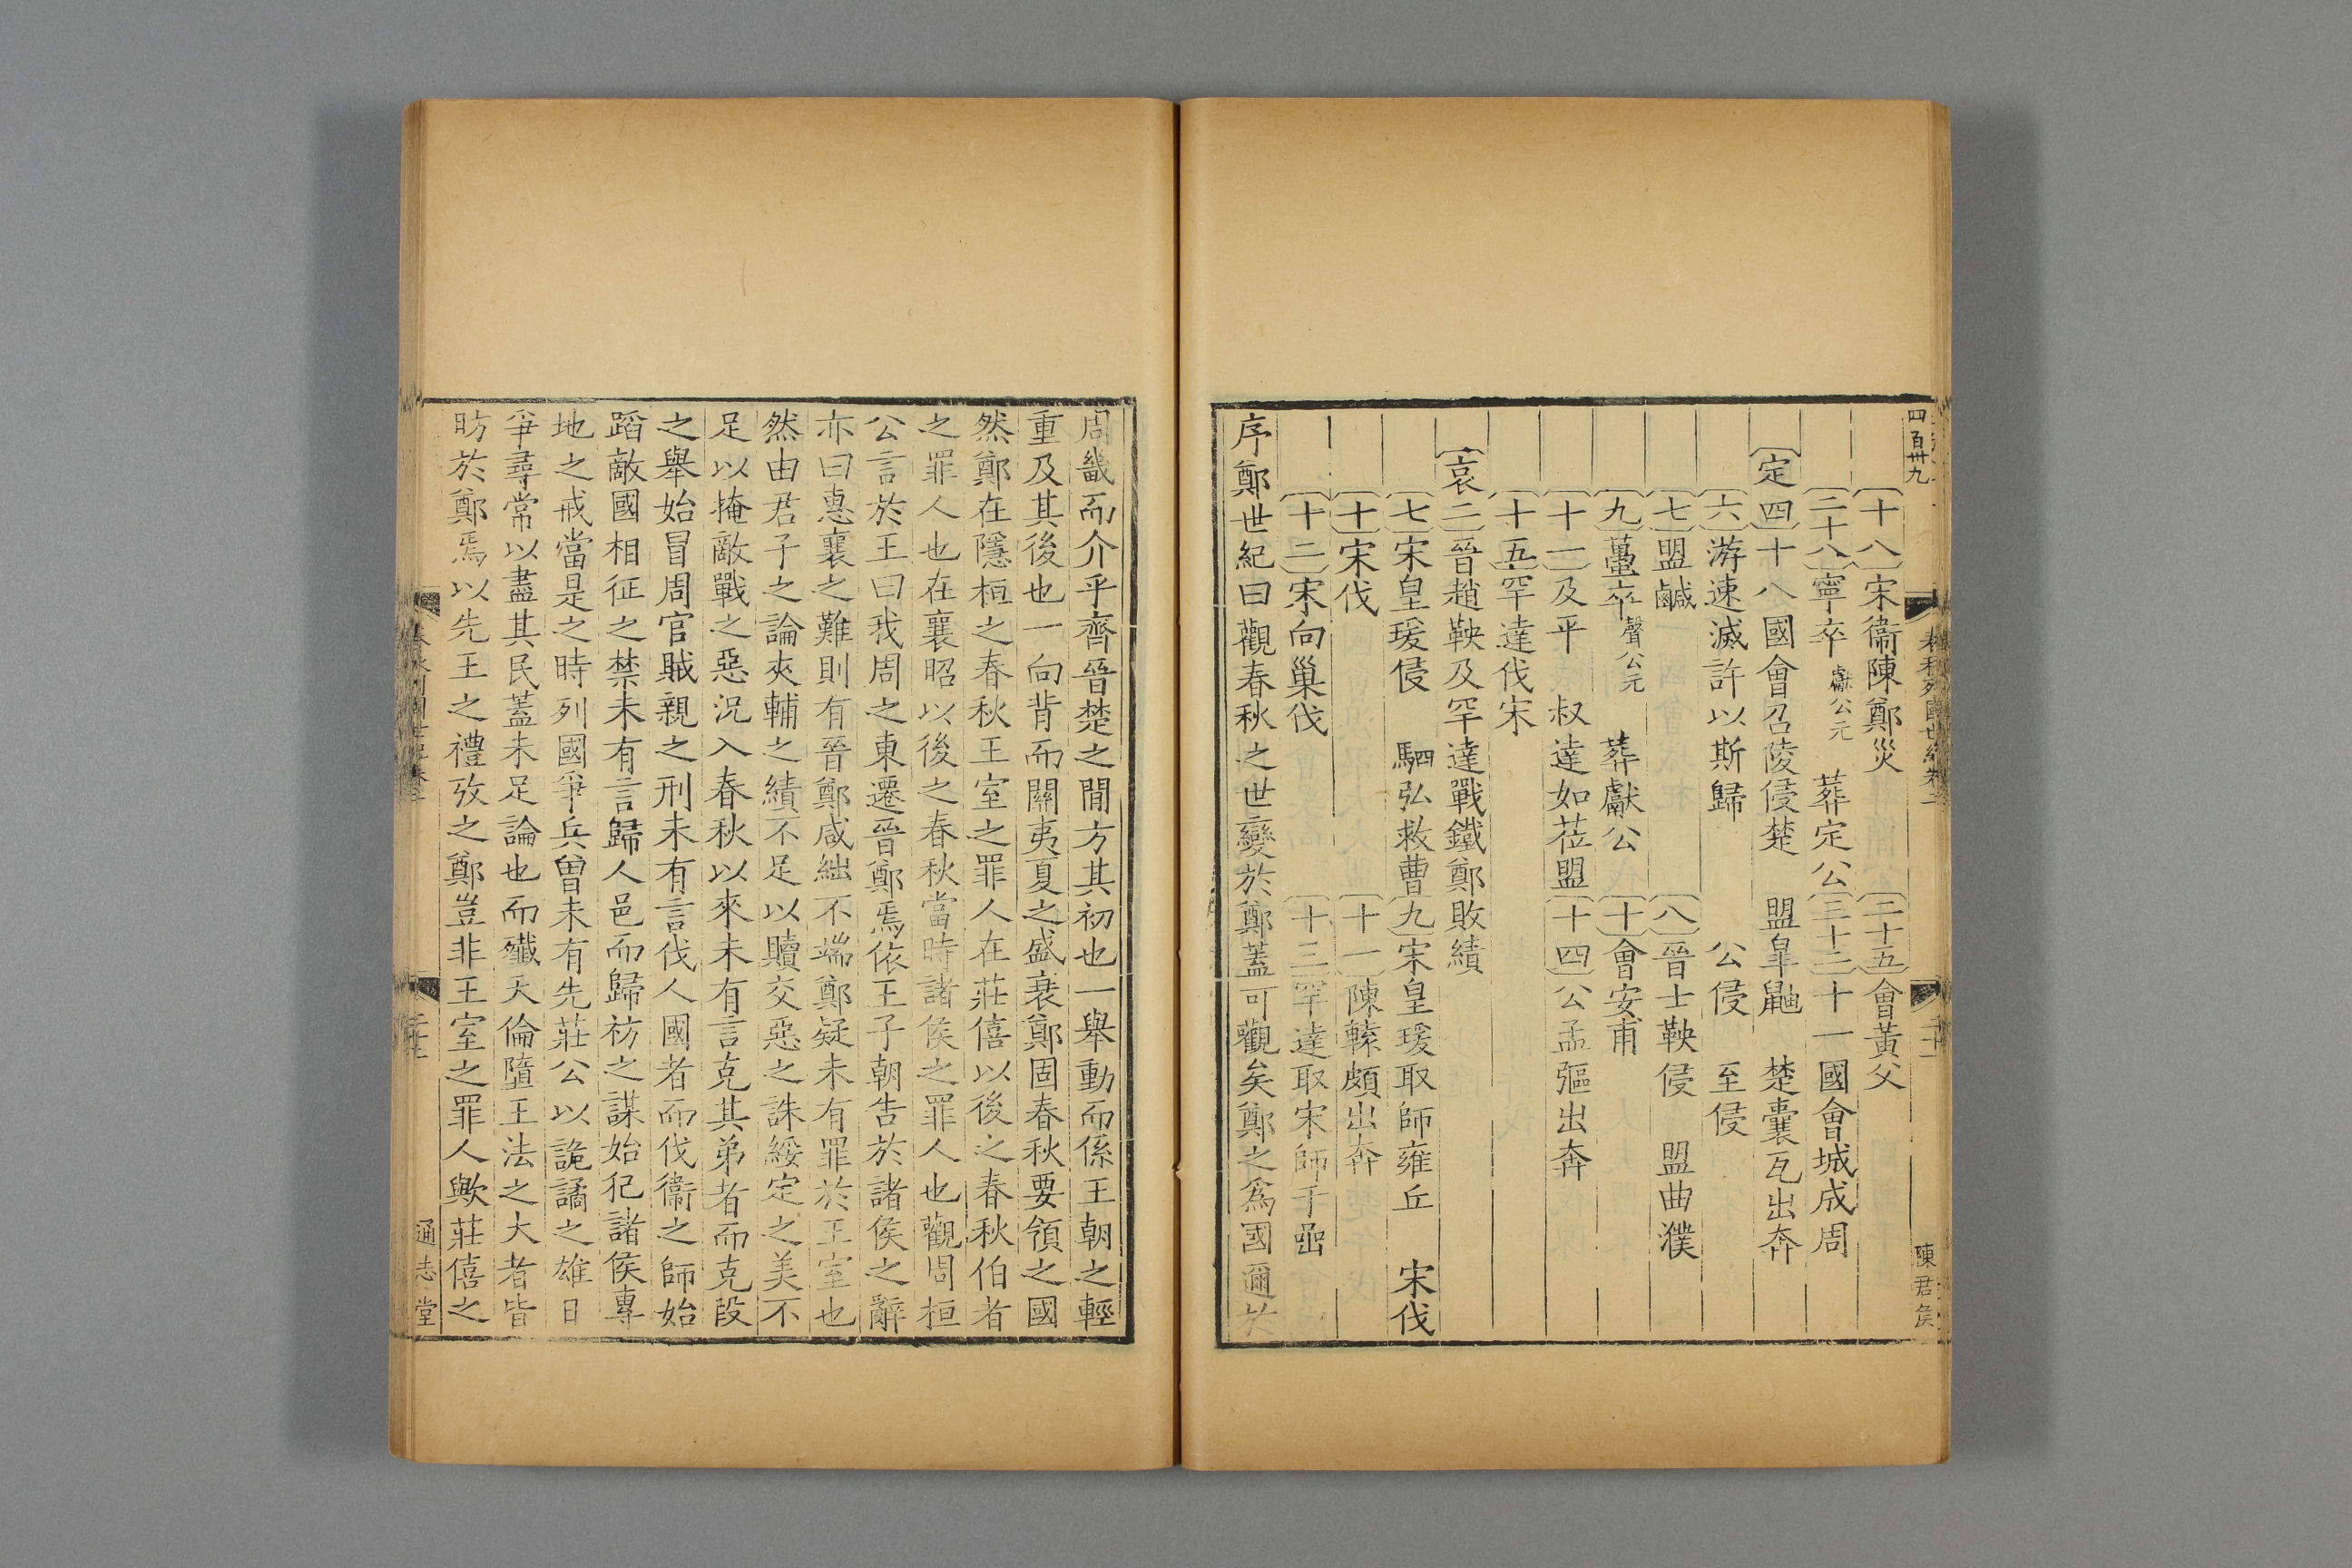 四百卅九
春秋列國世紀卷二
陳君侯
〔十八〕宋衞陳鄭災　〔二十五〕會黃父
〔二十八〕寧卒獻公元　葬定公〔三十二〕十一國會城成周
〔定四〕十八國會召陵侵楚　盟臯鼬　楚囊瓦出奔
〔六〕游速滅許以斯歸　公侵　至侵
〔七〕盟鹹　〔八〕晉士鞅侵　盟曲濮
〔九〕蠆卒聲公元　葬獻公　〔十〕會安甫
〔十一〕及平　叔達如莅盟〔十四〕公孟彄出奔
〔十五〕罕達伐宋
〔哀二〕晉趙鞅及罕達戰鐵鄭敗績
〔七〕宋皇瑗侵　駟弘救曹〔九〕宋皇瑗取師雍丘　宋伐
〔十〕宋伐　〔十一〕陳轅頗出奔
〔十二〕宋向巢伐　〔十三〕罕達取宋師于嵒
序鄭世紀曰觀春秋之世變於鄭蓋可觀矣鄭之爲國邇於
周畿而介乎齊晉楚之閒方其初也一舉動而係王朝之輕
重及其後也一向背而關夷夏之盛衰鄭固春秋要領之國
然鄭在隱桓之春秋王室之罪人在莊僖以後之春秋伯者
之罪人也在襄昭以後之春秋當時諸侯之罪人也觀周桓
公言於王曰我周之東遷晉鄭焉依王子朝告於諸侯之辭
亦曰惠襄之難則有晉鄭咸絀不端鄭疑未有罪於王室也
然由君子之論夾輔之績不足以贖交惡之誅綏定之美不
足以掩敵戰之惡況入春秋以來未有言克其弟者而克段
之舉始冒周官賊親之刑未有言伐人國者而伐衞之師始
蹈敵國相征之禁未有言歸人邑而歸祊之謀始犯諸侯專
地之戒當是之時列國爭兵曾未有先莊公以詭譎之雄日
爭尋常以盡其民蓋未足論也而殲天倫隳王法之大者皆
昉於鄭焉以先王之禮攷之鄭豈非王室之罪人歟莊僖之
通志堂